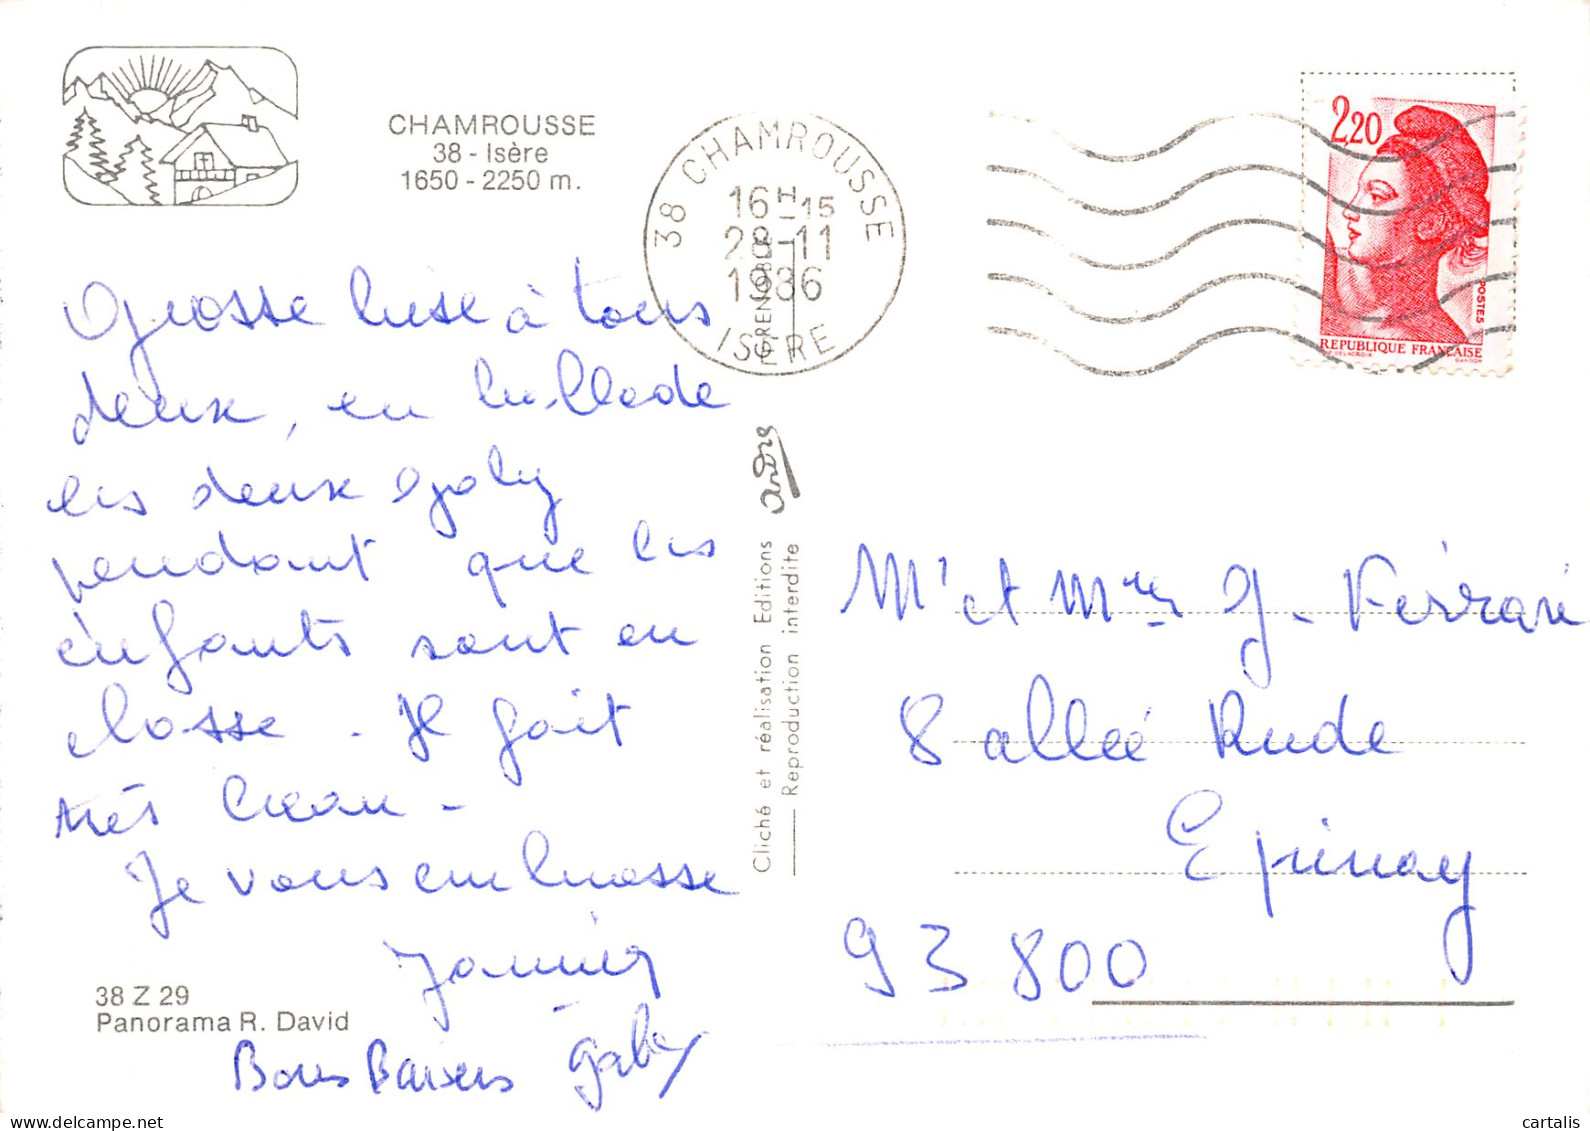 CHAMROUSSE
38 - Isère
1650 - 2250 m.
38 CHAMROUSSE
16H-15
28-11
1986
ISÈRE
GRENOBLE
2,20
POSTES
REPUBLIQUE FRANÇAISE
DELACROIX
GANDON
Grosse bise à tous
deux, en ballade
les deux Gaby
pendant que les
enfants sont en
classe. Il fait
très beau -
Je vous embrasse
Bons Baisers Gaby
38 Z 29
Panorama R. David
André
Cliché et réalisation Editions
Reproduction interdite
Mr et Mme G. Ferrari
8 allée Rude
Epinay
93800
cartalis
delcampe.net